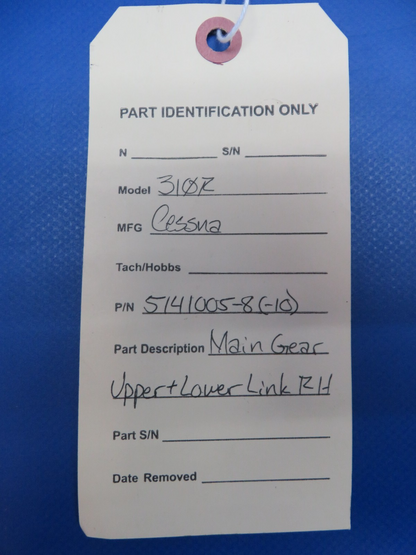 PART IDENTIFICATION ONLY
N ____________ S/N ____________
Model 310R
MFG Cessna
Tach/Hobbs ____________
P/N 5141005-8(-10)
Part Description Main Gear
Upper + Lower Link RH
Part S/N ____________
Date Removed ____________